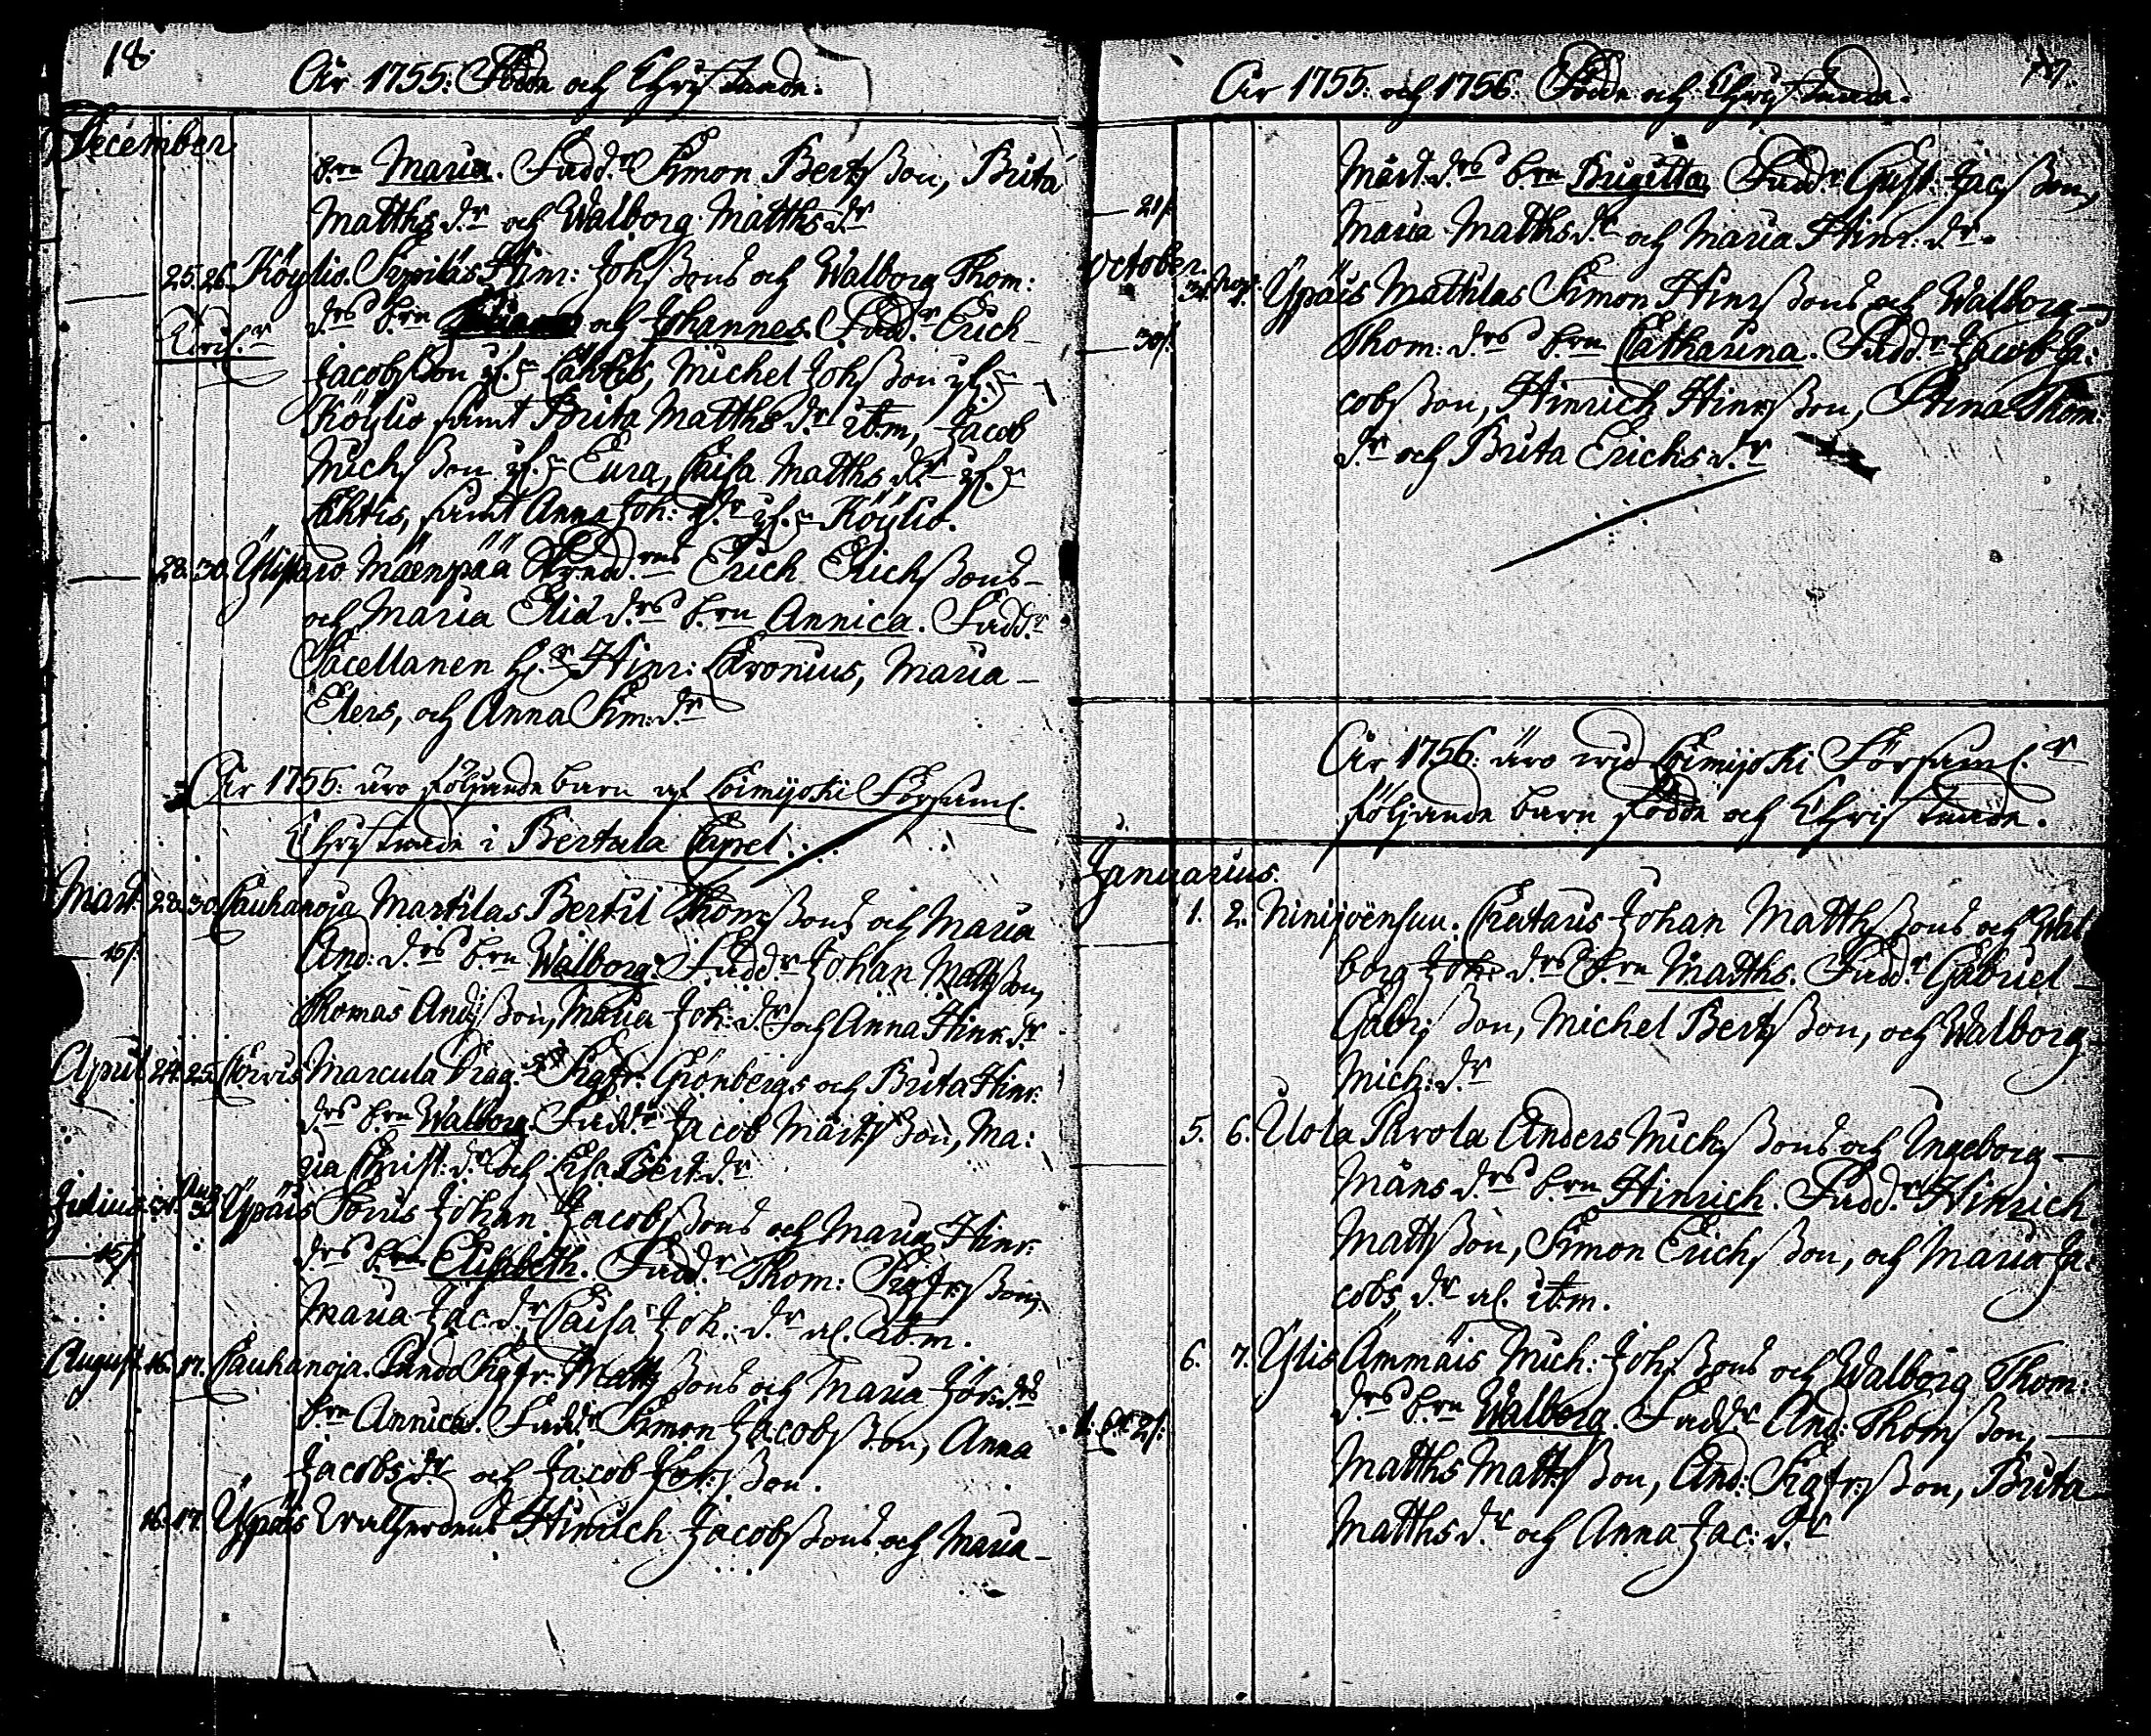 18.
År 1755: Födde och Christnade.
December
b:rn Maria. Fadd:r Simon Bertsson, Brita
Matths d:r och Walborg Matths d:r
25. 26. Köylio. Seppiläs Hinr: Johssons och Walborg Thom:
d:rs b:rn och Johannes. Fadd:r Erich
Jacobsson Lähtis, Michel Johsson
Köylio samt Brita Matths d:r ibm, Jacob
Michsson Eura, Caisa Matths d:r
Lähtis, samt Anna Joh: d:r Köylio.
28. 30. Ylistaro Mäenpää Erich Erichssons
och Maria Elia d:rs b:rn Annica. Fadd:r
Sacellanen H:r Hinr: Caronius, Maria
Elers, och Anna Sim: d:r
År 1755: äro följande barn af Loimijoki Församl.
Christnade i Bertula Capel.
Mart. 28. 30. Cauhanoja Martilas Bertil Thomssons och Maria
And: d:rs b:rn Walborg. Fadd:r Johan Mattsson,
15/.
Thomas Andsson, Maria Joh: d:r och Anna Hinr. d:r
April 24. 25. Marcula Drag: Sigfr: Grönbergs och Brita Hinr:
d:rs b:rn Walborg. Fadd:r Jacob Märtsson, Ma:
ria Christ: d:r och Lisa Bert: d:r
Julius Ypäis Johan Jacobssons och Maria Hinr:
d:rs b:rn Elisabeth. Fadd:r Thom: Sigfrsson,
15/.
Maria Jac: d:r, Caisa Joh: d:r al. ibm.
August. 16. 17. Cauhanoja. Sigfr: Mattssons och Maria Jör: d:rs
b:rn Annica. Fadd:r Simon Jacobsson, Anna
Jacobs d:r och Jacob
16. 17. Ypäis Hinrich Jacobssons och Maria
År 1755: och 1756: Födde och Christnade.
Märt: d:rs b:rn Brigitta, Fadd:r Gust: Jacsson,
21/.
Maria Matths d:r och Maria Hinr: d:r.
October.
31. Nov. 1. Ypäis Mathlas Simon Hinrssons och Walborg
Thom: d:rs b:rn Catharina. Fadd:r Jacob Ja:
30/.
cobsson, Hinrich Hinrsson, Stina Thom:
d:r och Brita Erichs d:r
År 1756: äro wid Loimijoki Församl:r
följande barn födde och Christnade.
Januarius.
1. 2. Ninijoënsuu. Johan Matthssons och Wal
borg Joh: d:rs b:rn Matths. Fadd:r Gabriel
Gabrsson, Michel Bertsson, och Walborg
Mich: d:r
5. 6. Uola Parola Anders Michssons och Ingeborg
Måns d:rs b:rn Hinrich. Fadd:r Hinrich
Mattsson, Simon Erichsson, och Maria Ja:
cobs d:r al. ibm.
6. 7. Ylis Ämmäis Mich: Johssons och Walborg Thom:
d:rs b:rn Walborg. Fadd:r And: Thomsson,
Matths Mattsson, And: Sigfrsson, Brita
Matths d:r och Anna Jac: d:r